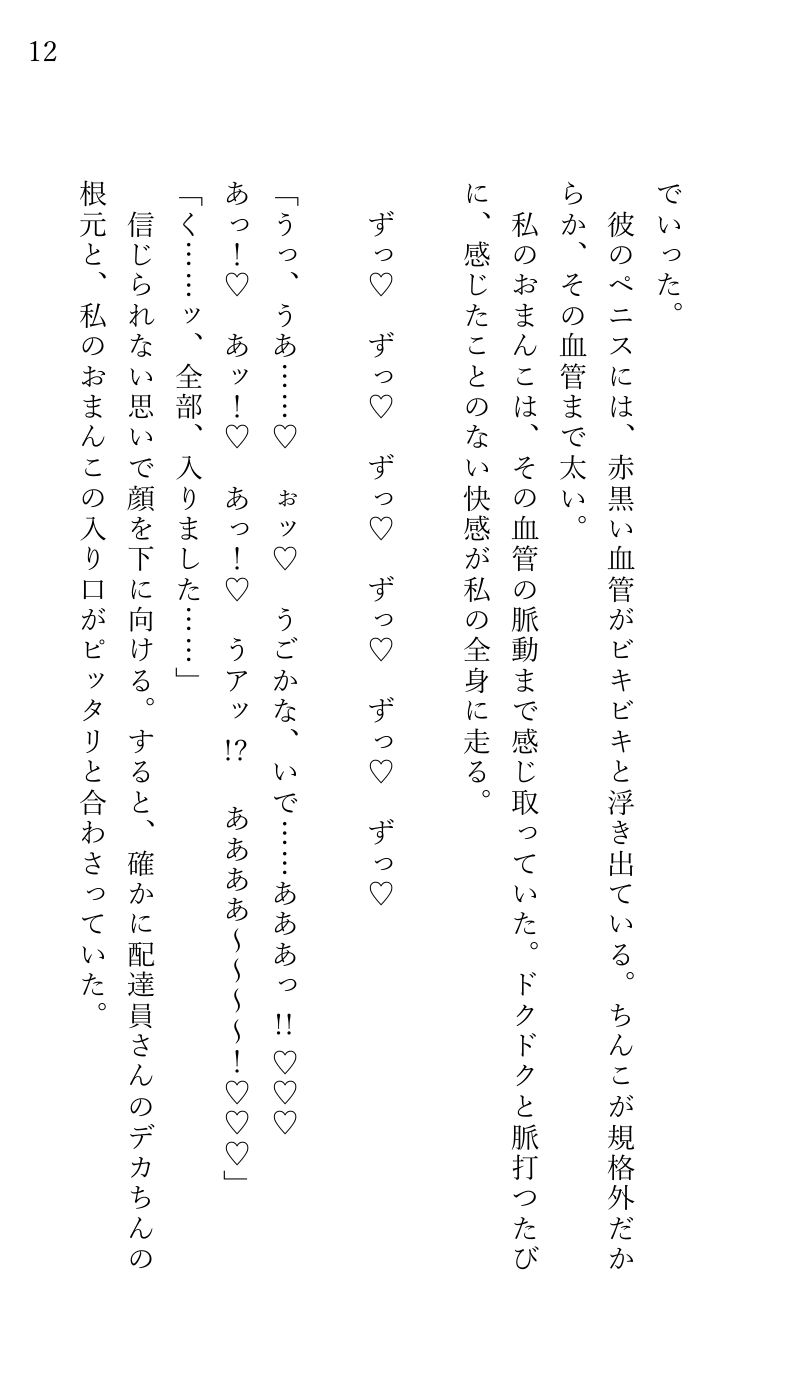 12
でいった。
　彼のペニスには、赤黒い血管がビキビキと浮き出ている。ちんこが規格外だか
らか、その血管まで太い。
　私のおまんこは、その血管の脈動まで感じ取っていた。ドクドクと脈打つたび
に、感じたことのない快感が私の全身に走る。
　ずっ♡　ずっ♡　ずっ♡　ずっ♡　ずっ♡　ずっ♡
「うっ、うあ……♡　ぉッ♡　うごかな、いで……あああっ!!♡♡♡
あっ！♡　あッ！♡　あっ！♡　うアッ!?　ああああ～～～～！♡♡♡」
「く……ッ、全部、入りました……」
　信じられない思いで顔を下に向ける。すると、確かに配達員さんのデカちんの
根元と、私のおまんこの入り口がピッタリと合わさっていた。